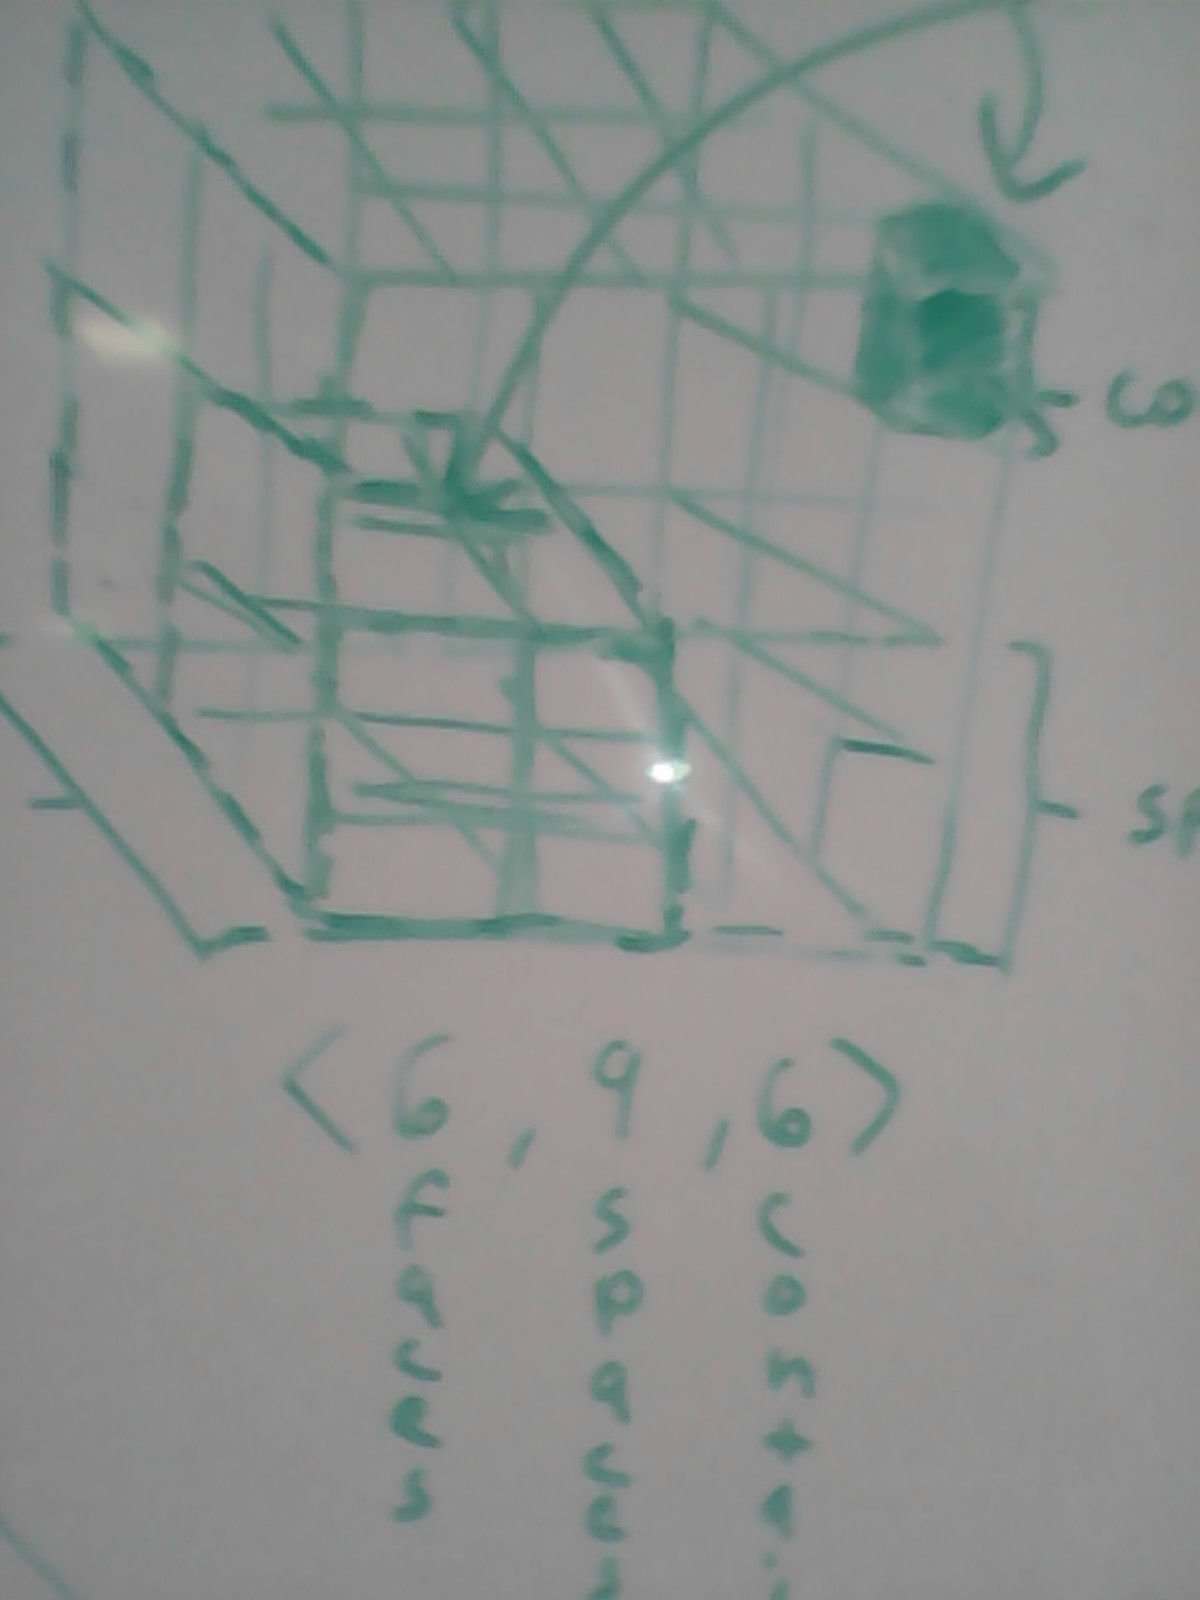 co
sp
<6, 9, 6>
faces
spaces
contai